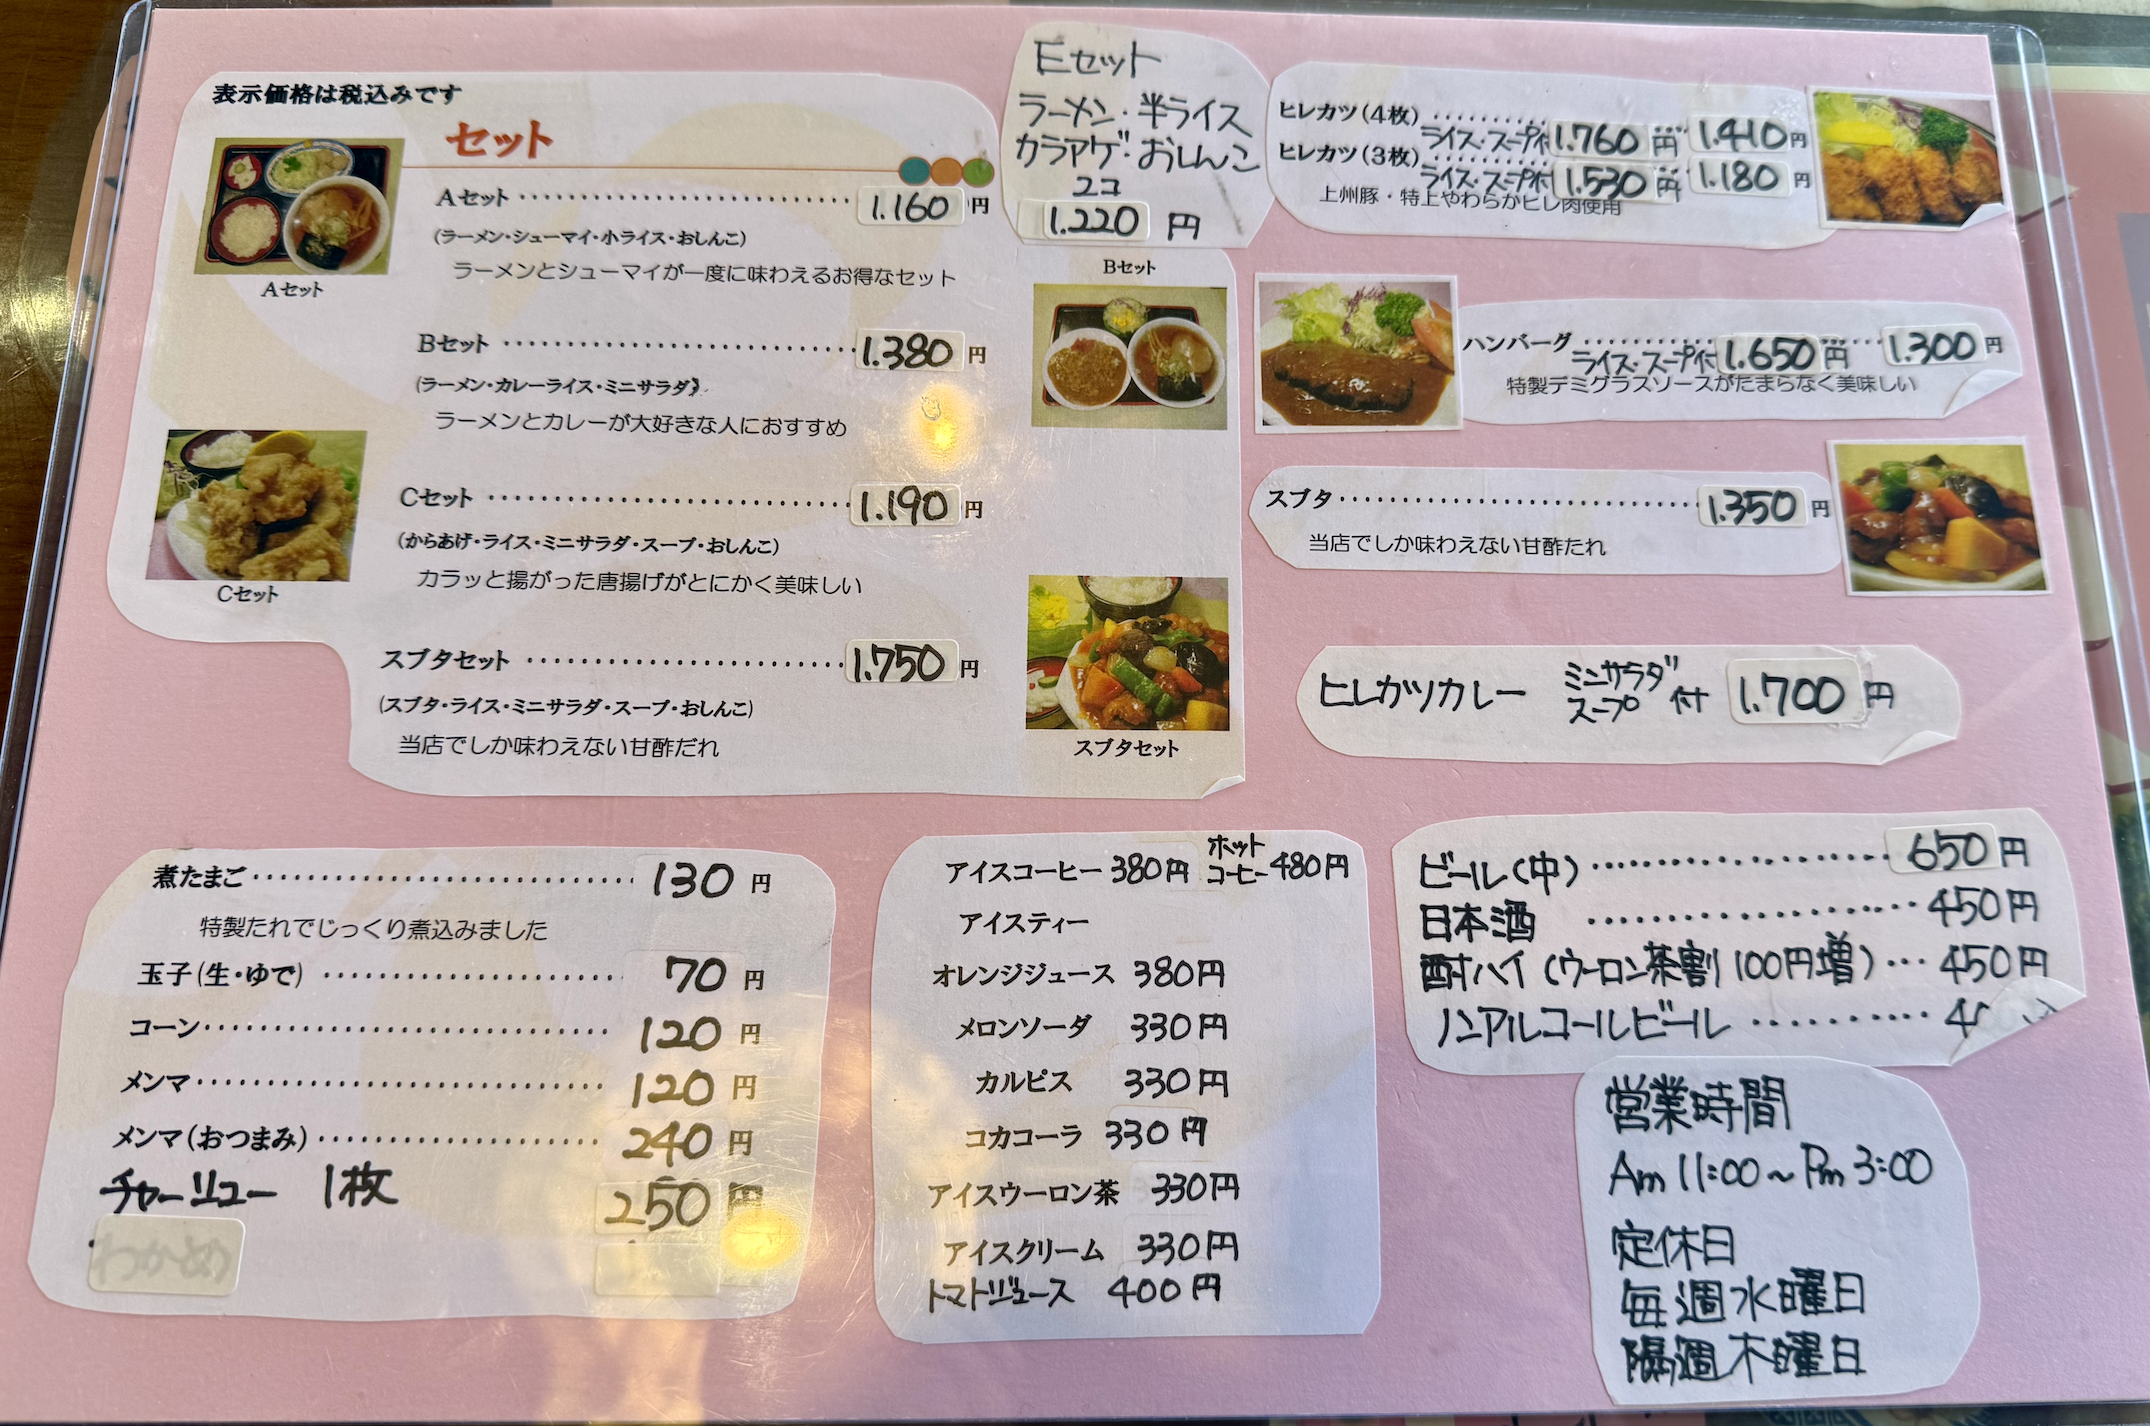 表示価格は税込みです
セット
Aセット 1.160円
(ラーメン・シューマイ・小ライス・おしんこ)
ラーメンとシューマイが一度に味わえるお得なセット
Aセット
Bセット 1.380円
(ラーメン・カレーライス・ミニサラダ)
ラーメンとカレーが大好きな人におすすめ
Cセット 1.190円
(からあげ・ライス・ミニサラダ・スープ・おしんこ)
カラッと揚がった唐揚げがとにかく美味しい
Cセット
スブタセット 1.750円
(スブタ・ライス・ミニサラダ・スープ・おしんこ)
当店でしか味わえない甘酢だれ
Bセット
スブタセット
Eセット
ラーメン・半ライス
カラアゲ・おしんこ
2コ
1.220円
ヒレカツ(4枚) 1.410円
ライス・スープ付 1.760円
ヒレカツ(3枚) 1.180円
ライス・スープ付 1.530円
上州豚・特上やわらかヒレ肉使用
ハンバーグ 1.300円
ライス・スープ付 1.650円
特製デミグラスソースがたまらなく美味しい
スブタ 1.350円
当店でしか味わえない甘酢たれ
ヒレカツカレー ミニサラダ スープ 付 1.700円
煮たまご 130円
特製たれでじっくり煮込みました
玉子(生・ゆで) 70円
コーン 120円
メンマ 120円
メンマ(おつまみ) 240円
チャーシュー 1枚 250円
わかめ
アイスコーヒー 380円 ホットコーヒー 480円
アイスティー
オレンジジュース 380円
メロンソーダ 330円
カルピス 330円
コカコーラ 330円
アイスウーロン茶 330円
アイスクリーム 330円
トマトジュース 400円
ビール(中) 650円
日本酒 450円
酎ハイ(ウーロン茶割100円増) 450円
ノンアルコールビール
営業時間
Am 11:00~Pm 3:00
定休日
毎週水曜日
隔週木曜日